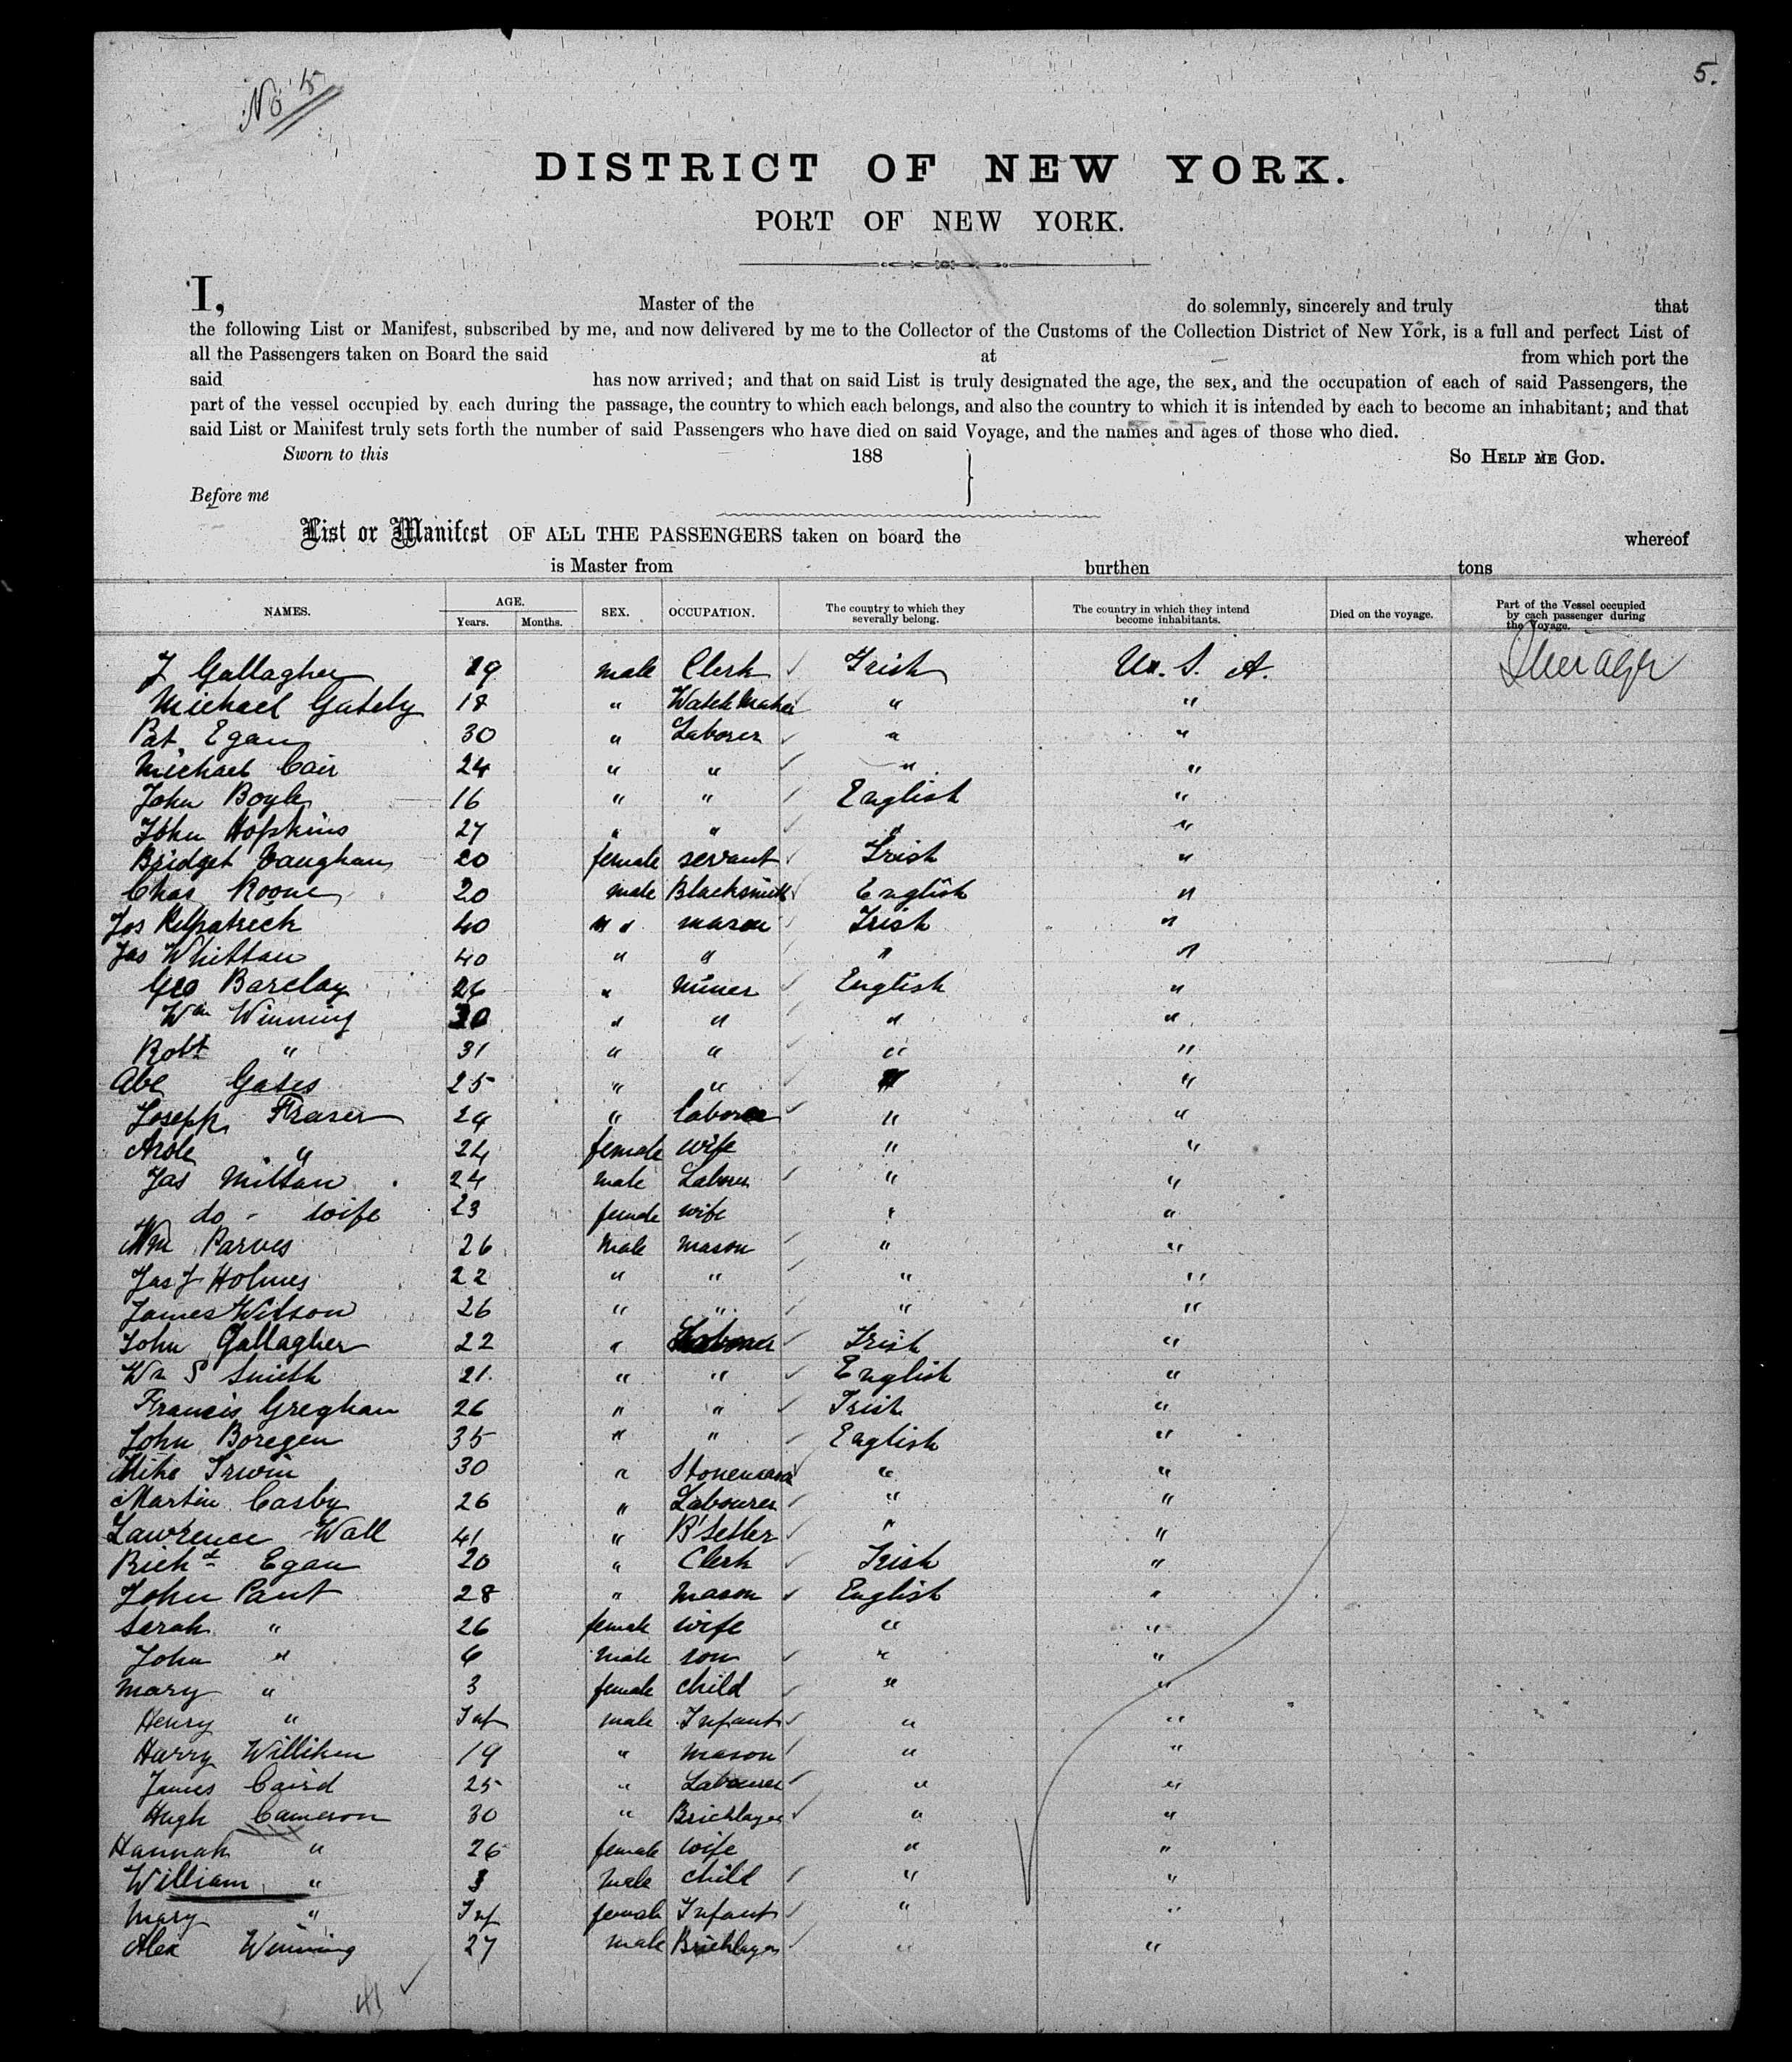 No 5
5.
DISTRICT OF NEW YORK.
PORT OF NEW YORK.
I, Master of the do solemnly, sincerely and truly that
the following List or Manifest, subscribed by me, and now delivered by me to the Collector of the Customs of the Collection District of New York, is a full and perfect List of
all the Passengers taken on Board the said at from which port the
said has now arrived; and that on said List is truly designated the age, the sex, and the occupation of each of said Passengers, the
part of the vessel occupied by each during the passage, the country to which each belongs, and also the country to which it is intended by each to become an inhabitant; and that
said List or Manifest truly sets forth the number of said Passengers who have died on said Voyage, and the names and ages of those who died.
Sworn to this 188 } So HELP ME GOD.
Before me
List or Manifest OF ALL THE PASSENGERS taken on board the whereof
is Master from burthen tons
NAMES. AGE. Years. Months. SEX. OCCUPATION. The country to which they severally belong. The country in which they intend become inhabitants. Died on the voyage. Part of the Vessel occupied by each passenger during the Voyage.
J Gallagher 19 male Clerk Irish U. S. A. Steerage
Michael Gately 18 " Watch Maker " "
Pat Egan 30 " Laborer " "
Michael Cair 24 " " " "
John Boyle 16 " " English "
John Hopkins 27 " " " "
Bridget Vaughan 20 female servant Irish "
Chas Roone 20 male Blacksmith English "
Jos Kilpatrick 40 " " mason Irish "
Jas Whittan 40 " " " "
Geo Barclay 26 " miner English "
Wm Winning 30 " " " "
Robt " 31 " " " "
Abe Gates 25 " " " "
Joseph Fraser 24 " laborer " "
" 24 female wife " "
Jas Mittan 24 male Laborer " "
do - wife 23 female wife " "
Wm Parves 26 male mason " "
Jas J Holmes 22 " " " "
James Wilson 26 " " " "
John Gallagher 22 " Laborer Irish "
Wm S Smith 21 " " English "
Francis Greghan 26 " " Irish "
John Boregen 35 " " English "
Mike Irwin 30 " Stonemason " "
Martin Casby 26 " Labourer " "
Lawrence Wall 41 " B'setler " "
Richd Egan 20 " Clerk Irish "
John Pant 28 " mason English "
Sarah " 26 female wife " "
John " 6 male son " "
Mary " 3 female child " "
Henry " Inf male Infant " "
Harry Williken 19 " mason " "
James Caird 25 " Labourer " "
Hugh Cameron 30 " Bricklayer " "
Hannah " 26 female wife " "
William " 3 male child " "
Mary " Inf female Infant " "
Alex Winning 27 male Bricklayer " "
41